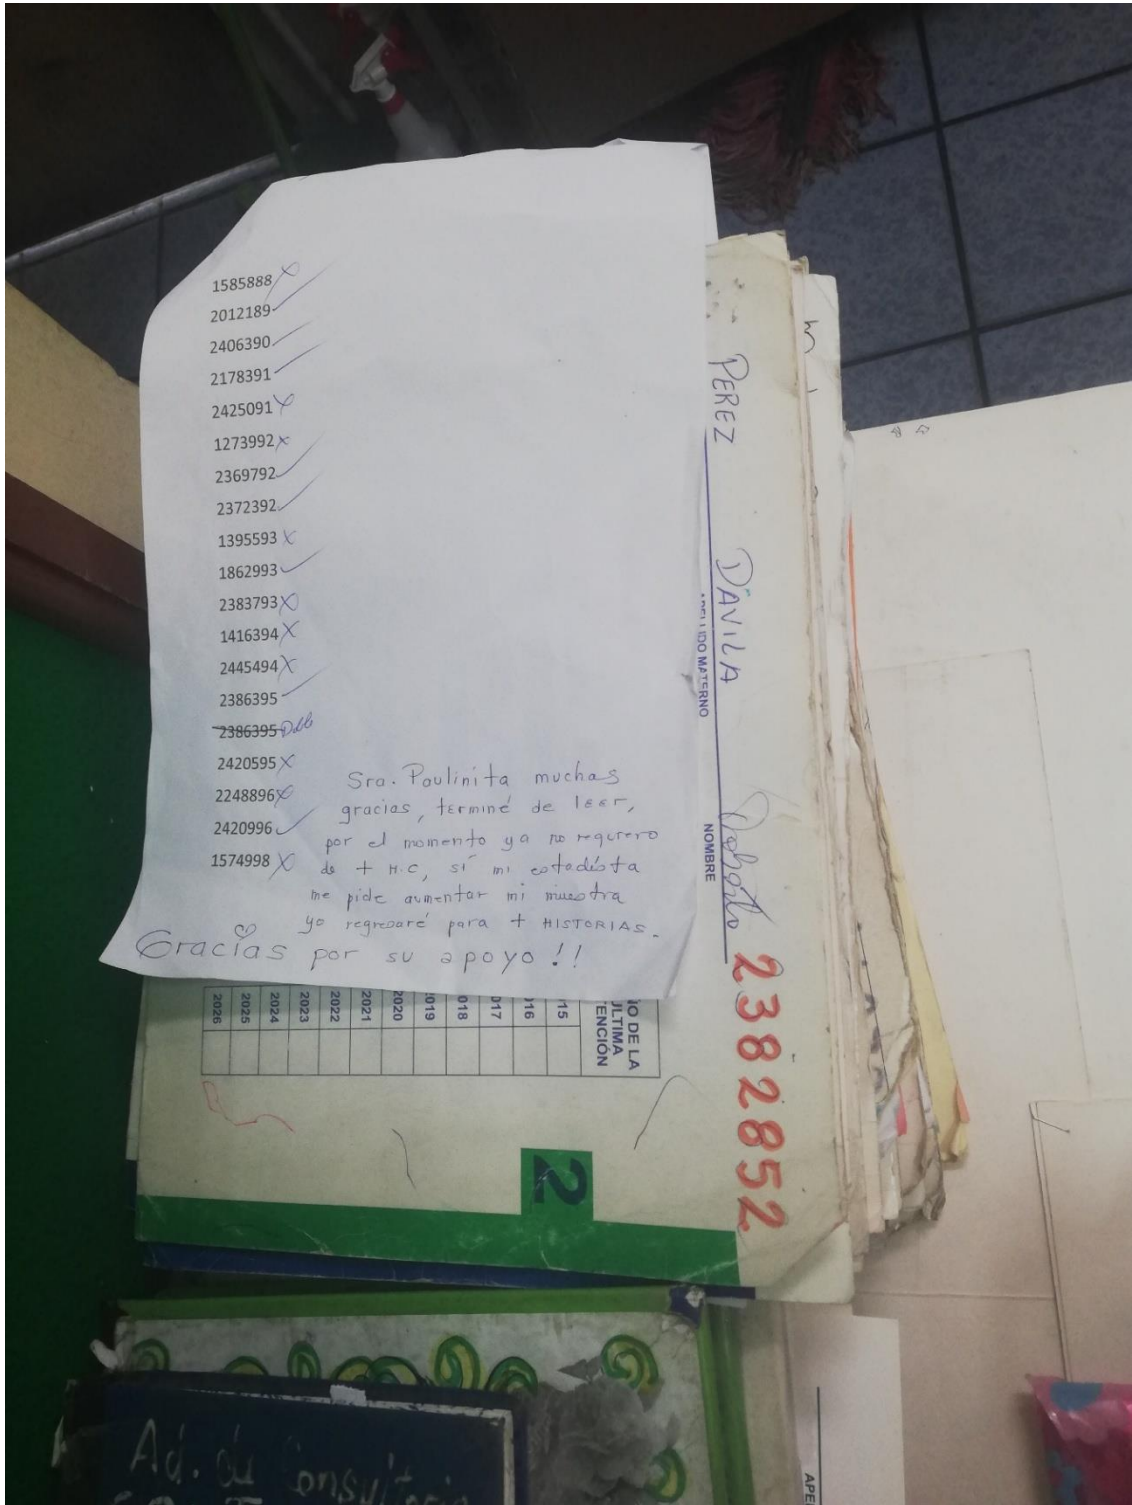 1585888 x
2012189 ✓
2406390 ✓
2178391 ✓
2425091 x
1273992 x
2369792 ✓
2372392 ✓
1395593 x
1862993 ✓
2383793 x
1416394 x
2445494 x
2386395 ✓
2386395 Doble
2420595 x
2248896 x
2420996 ✓
1574998 x
Sra. Paulinita muchas
gracias, terminé de leer,
por el momento ya no requiero
de + H.C, sí mi estadísta
me pide aumentar mi muestra
yo regresaré para + HISTORIAS.
Gracias por su apoyo!!
PEREZ
DÁVILA
APELLIDO MATERNO
NOMBRE
2382852
ÚLTIMA
15
16
17
018
019
020
2021
2022
2023
2024
2025
2026
2
Ad. de Consultorio
APE